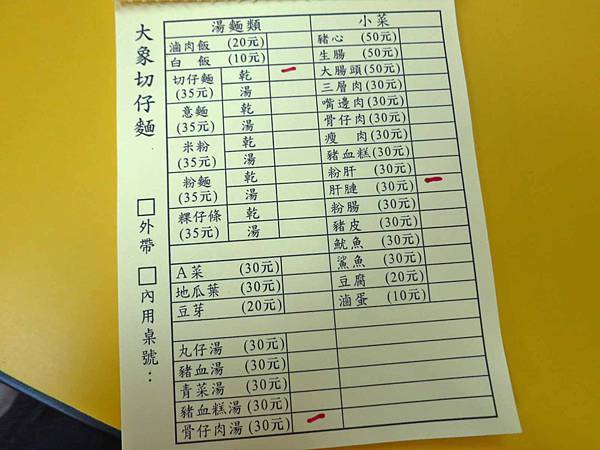 大象切仔麵
□外帶 □內用桌號：
湯麵類
滷肉飯 (20元)
白飯 (10元)
切仔麵 乾
(35元) 湯
意麵 乾
(35元) 湯
米粉 乾
(35元) 湯
粉麵 乾
(35元) 湯
粿仔條 乾
(35元) 湯
A菜 (30元)
地瓜葉 (30元)
豆芽 (20元)
丸仔湯 (30元)
豬血湯 (30元)
青菜湯 (30元)
豬血糕湯 (30元)
骨仔肉湯 (30元)
小菜
豬心 (50元)
生腸 (50元)
大腸頭 (50元)
三層肉 (30元)
嘴邊肉 (30元)
骨仔肉 (30元)
瘦肉 (30元)
豬血糕 (30元)
粉肝 (30元)
肝腱 (30元)
粉腸 (30元)
豬皮 (30元)
魷魚 (30元)
鯊魚 (30元)
豆腐 (20元)
滷蛋 (10元)